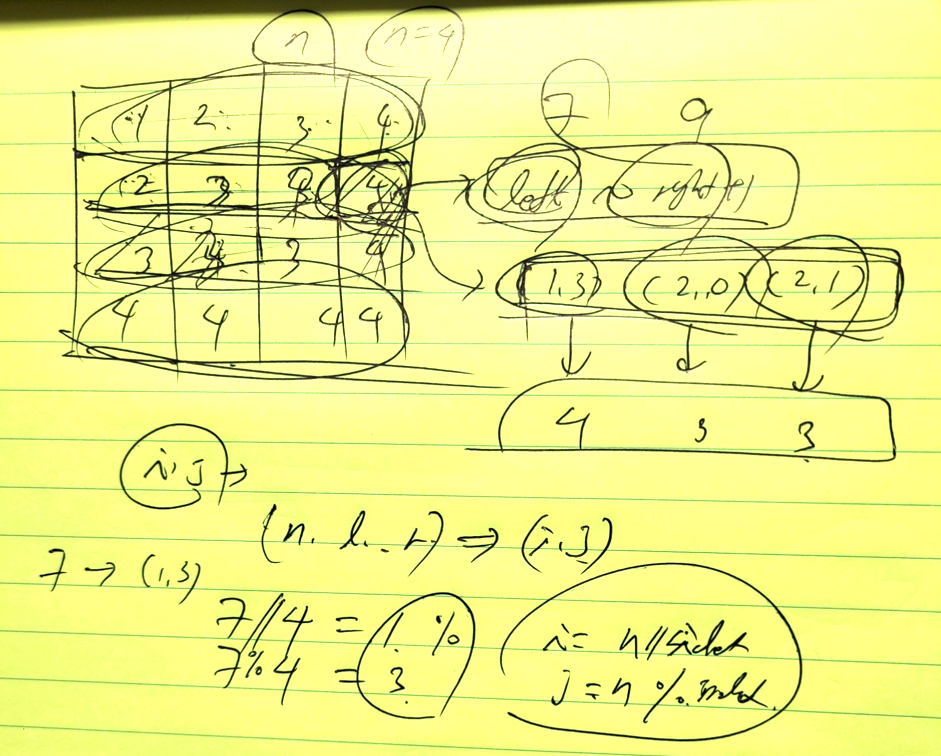 n n=4
1 2 3 4
7 9
2 3 4 4
left ~ right+1
3 4 3 4
(1,3) (2,0) (2,1)
4 4 4 4
4 3 3
i, j →
(n. l.. r) ⇒ (i, j)
7 → (1,3)
7//4 = 1 %
7%4 = 3
i = n//
j = n %